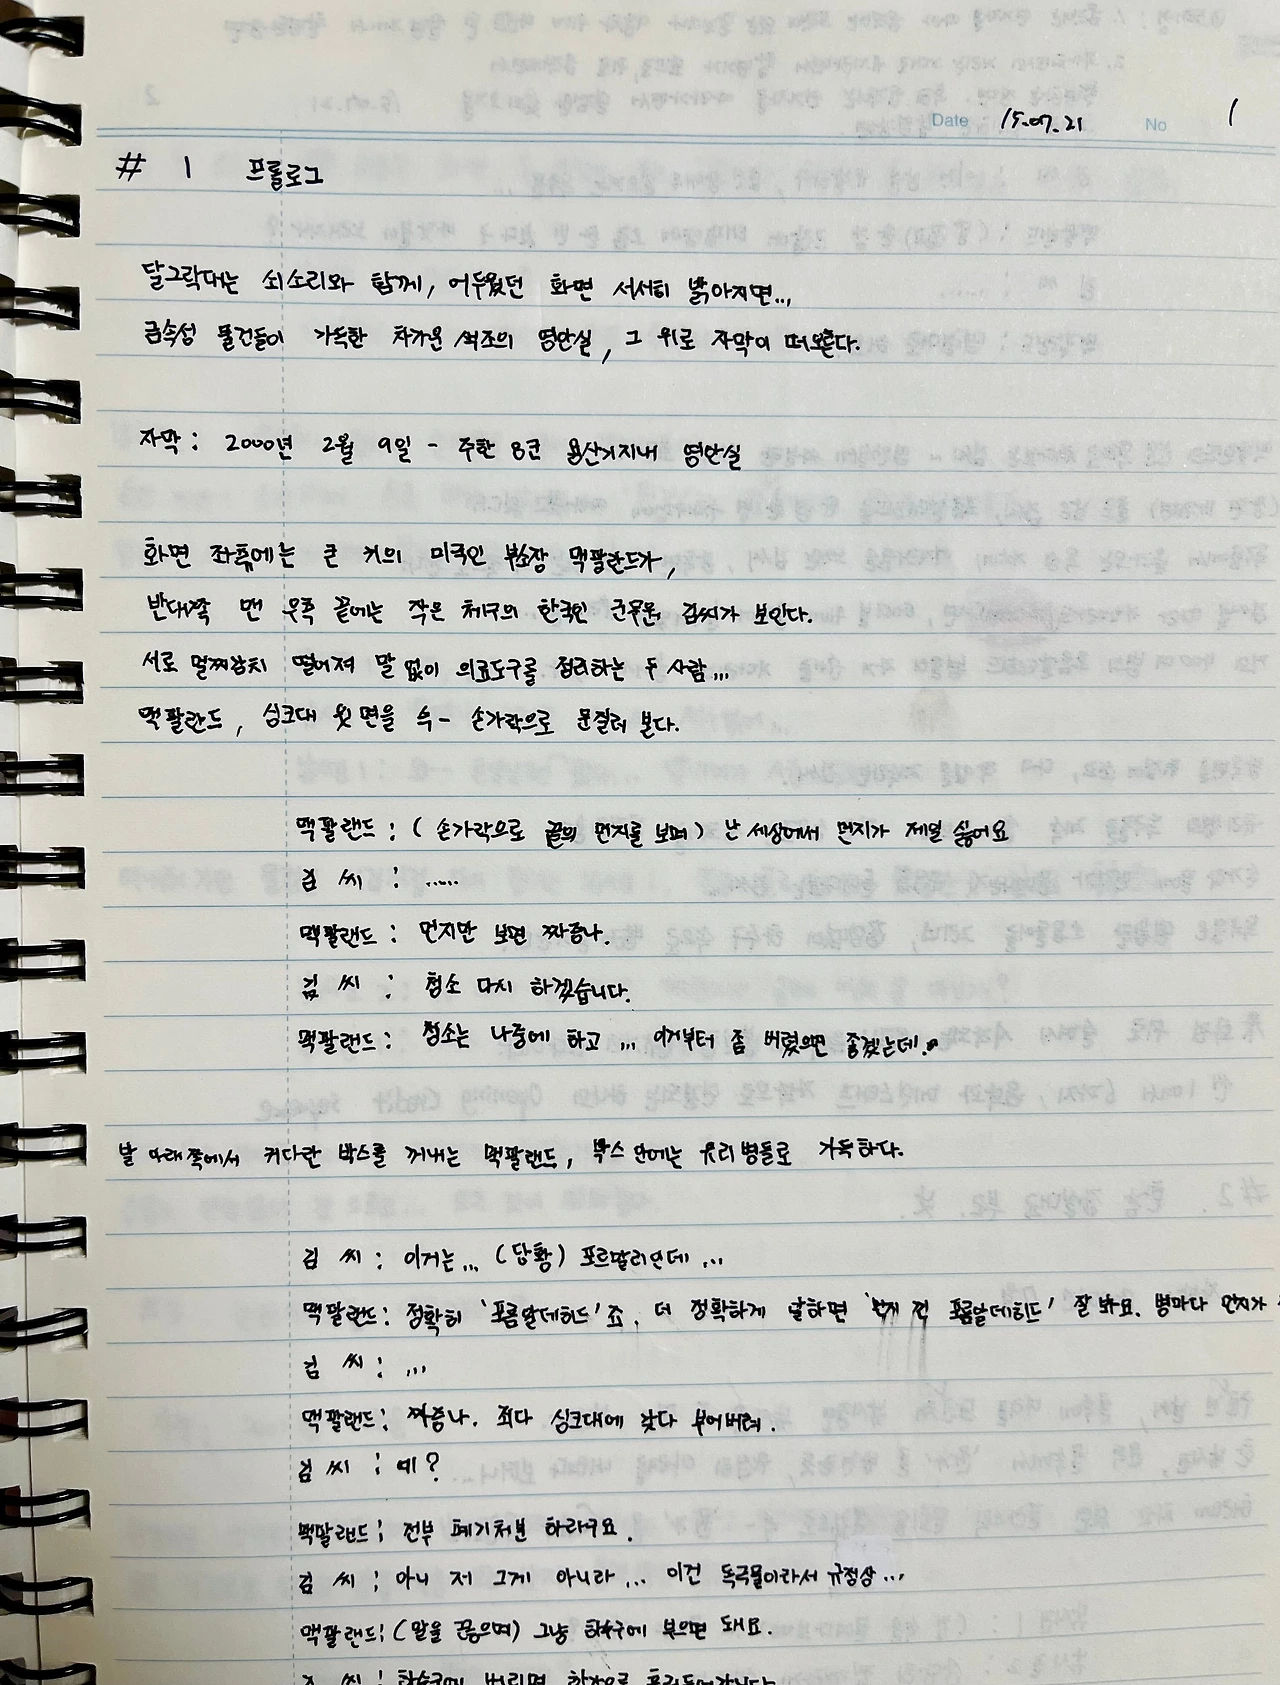 Date 15.07.21 No 1
# 1 프롤로그
달그락대는 쇠소리와 함께, 어두웠던 화면 서서히 밝아지면...
금속성 물건들이 가득한 차가운 색조의 영안실, 그 위로 자막이 떠오른다.
자막 : 2000년 2월 9일 - 주한 8군 용산기지내 영안실
화면 좌측에는 큰 키의 미국인 부소장 맥팔랜드가,
반대쪽 맨 우측 끝에는 작은 체구의 한국인 군무원 김씨가 보인다.
서로 멀찌감치 떨어져 말 없이 의료도구를 정리하는 두 사람...
맥팔랜드, 싱크대 윗 면을 슥- 손가락으로 문질러 본다.
맥팔랜드 : (손가락으로 끝의 먼지를 보며) 난 세상에서 먼지가 제일 싫어요
김 씨 : .....
맥팔랜드 : 먼지만 보면 짜증나.
김 씨 : 청소 다시 하겠습니다.
맥팔랜드 : 청소는 나중에 하고 ... 이거부터 좀 버렸으면 좋겠는데.
발 아래쪽에서 커다란 박스를 꺼내는 맥팔랜드, 박스 안에는 유리병들로 가득하다.
김 씨 : 이거는... (당황) 포르말린인데 ...
맥팔랜드 : 정확히 '포름알데히드'죠. 더 정확하게 말하면 '먼지 낀 포름알데히드' 잘 봐요. 병마다 먼지가
김 씨 : ...
맥팔랜드 : 짜증나. 죄다 싱크대에 갖다 부어버려.
김 씨 : 네?
맥팔랜드 : 전부 폐기처분 하라구요.
김 씨 : 아니 저 그게 아니라 ... 이건 독극물이라서 규정상 ...
맥팔랜드 : (말을 끊으며) 그냥 하수구에 부으면 돼요.
김 씨 : 하수구에 버리면 한강으로 흘러들어갑니다